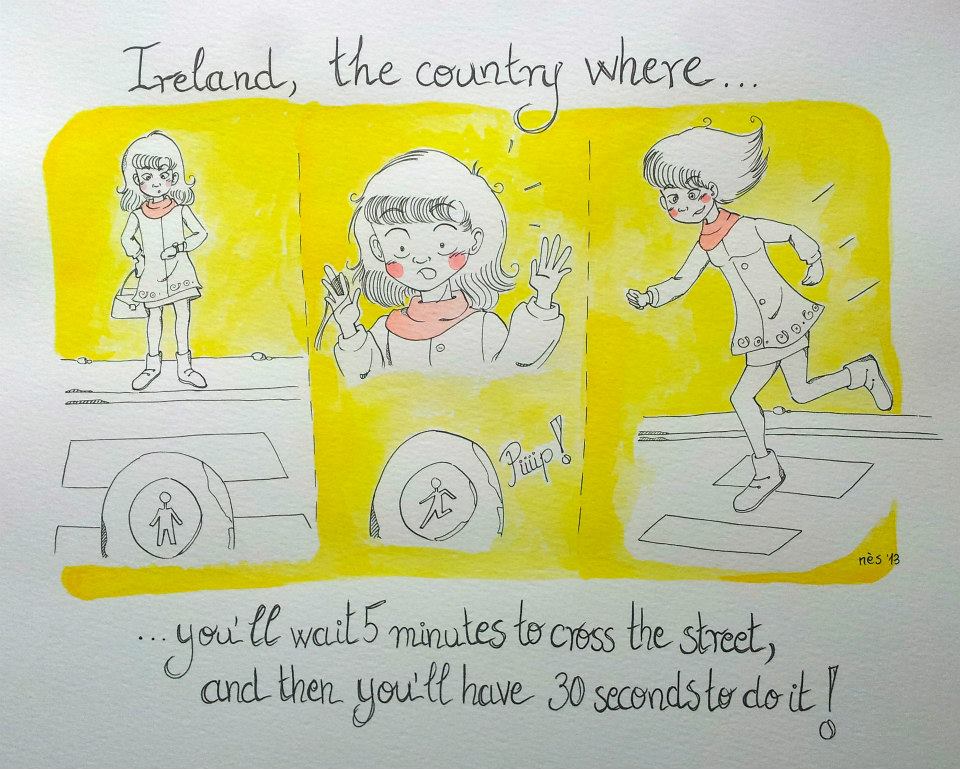 Ireland, the country where...
Piiiip!
nès '13
...you'll wait 5 minutes to cross the street,
and then you'll have 30 seconds to do it!